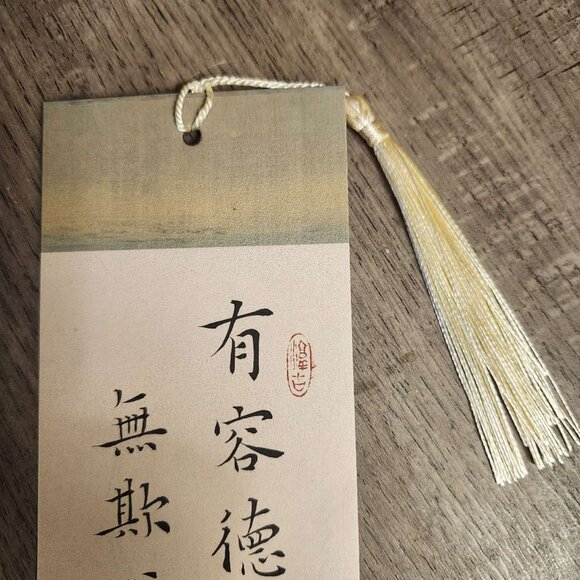 有容德
無欺